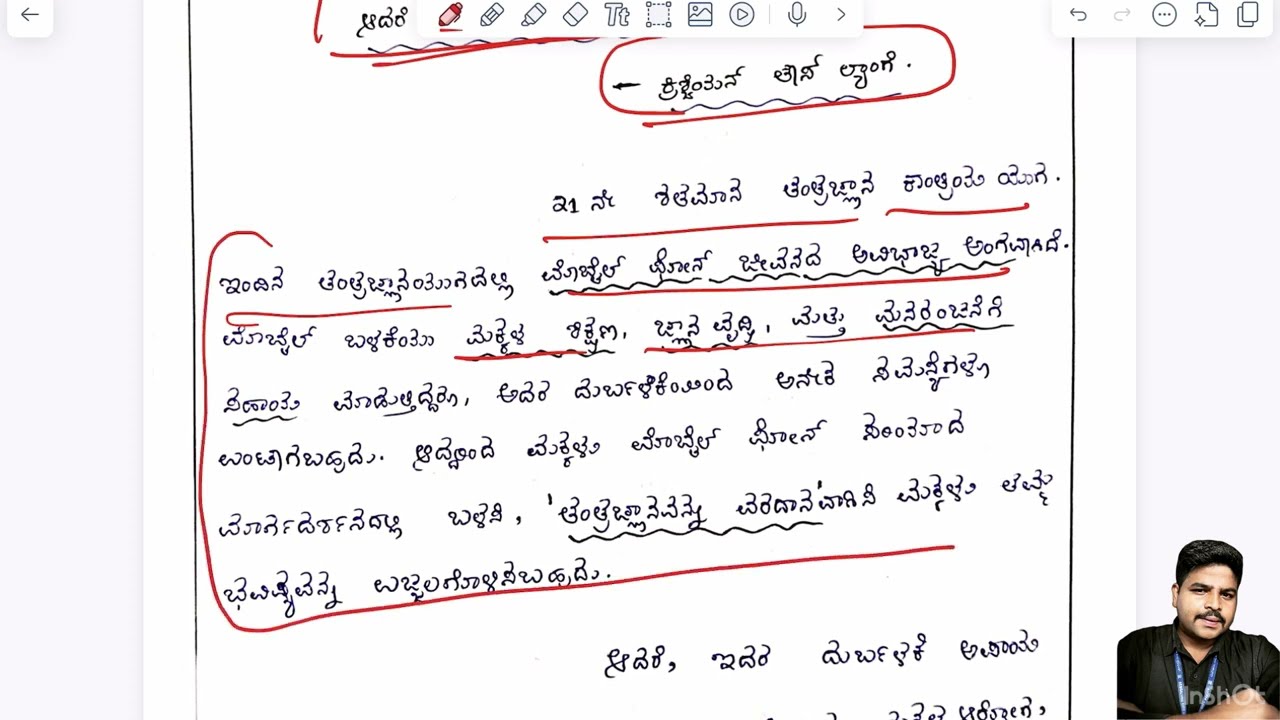 ಆದರೆ
- ಕ್ರಿಶ್ಚಿಯನ್ ಲೌಸ್ ಲ್ಯಾಂಗೆ.
21 ನೇ ಶತಮಾನ ತಂತ್ರಜ್ಞಾನ ಕ್ರಾಂತಿಯ ಯುಗ.
ಇಂದಿನ ತಂತ್ರಜ್ಞಾನಯುಗದಲ್ಲಿ ಮೊಬೈಲ್ ಫೋನ್ ಜೀವನದ ಅವಿಭಾಜ್ಯ ಅಂಗವಾಗಿದೆ.
ಮೊಬೈಲ್ ಬಳಕೆಯು ಮಕ್ಕಳ ಶಿಕ್ಷಣ, ಜ್ಞಾನ ವೃದ್ಧಿ, ಮತ್ತು ಮನರಂಜನೆಗೆ
ಸಹಾಯ ಮಾಡುತ್ತಿದ್ದರೂ, ಅದರ ದುರ್ಬಳಕೆಯಿಂದ ಅನೇಕ ಸಮಸ್ಯೆಗಳೂ
ಉಂಟಾಗಬಹುದು. ಆದ್ದರಿಂದ ಮಕ್ಕಳು ಮೊಬೈಲ್ ಫೋನ್ ಸರಿಯಾದ
ಮಾರ್ಗದರ್ಶನದಲ್ಲಿ ಬಳಸಿ, 'ತಂತ್ರಜ್ಞಾನವನ್ನು ವರದಾನ'ವಾಗಿಸಿ ಮಕ್ಕಳು ತಮ್ಮ
ಭವಿಷ್ಯವನ್ನು ಉಜ್ವಲಗೊಳಿಸಬಹುದು.
ಆದರೆ, ಇದರ ದುರ್ಬಳಕೆ ಅಪಾಯ
ಆರೋಗ್ಯ,
InShOt